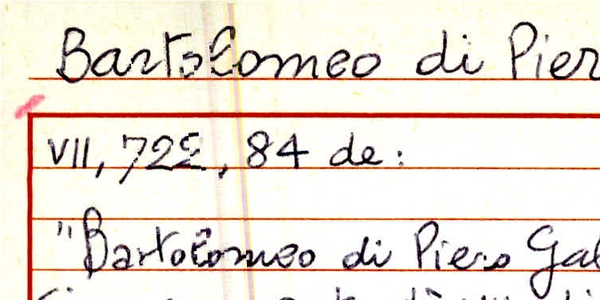 Bartolomeo di Pier
VII, 722, 84 de:
"Bartolomeo di Piero Gal